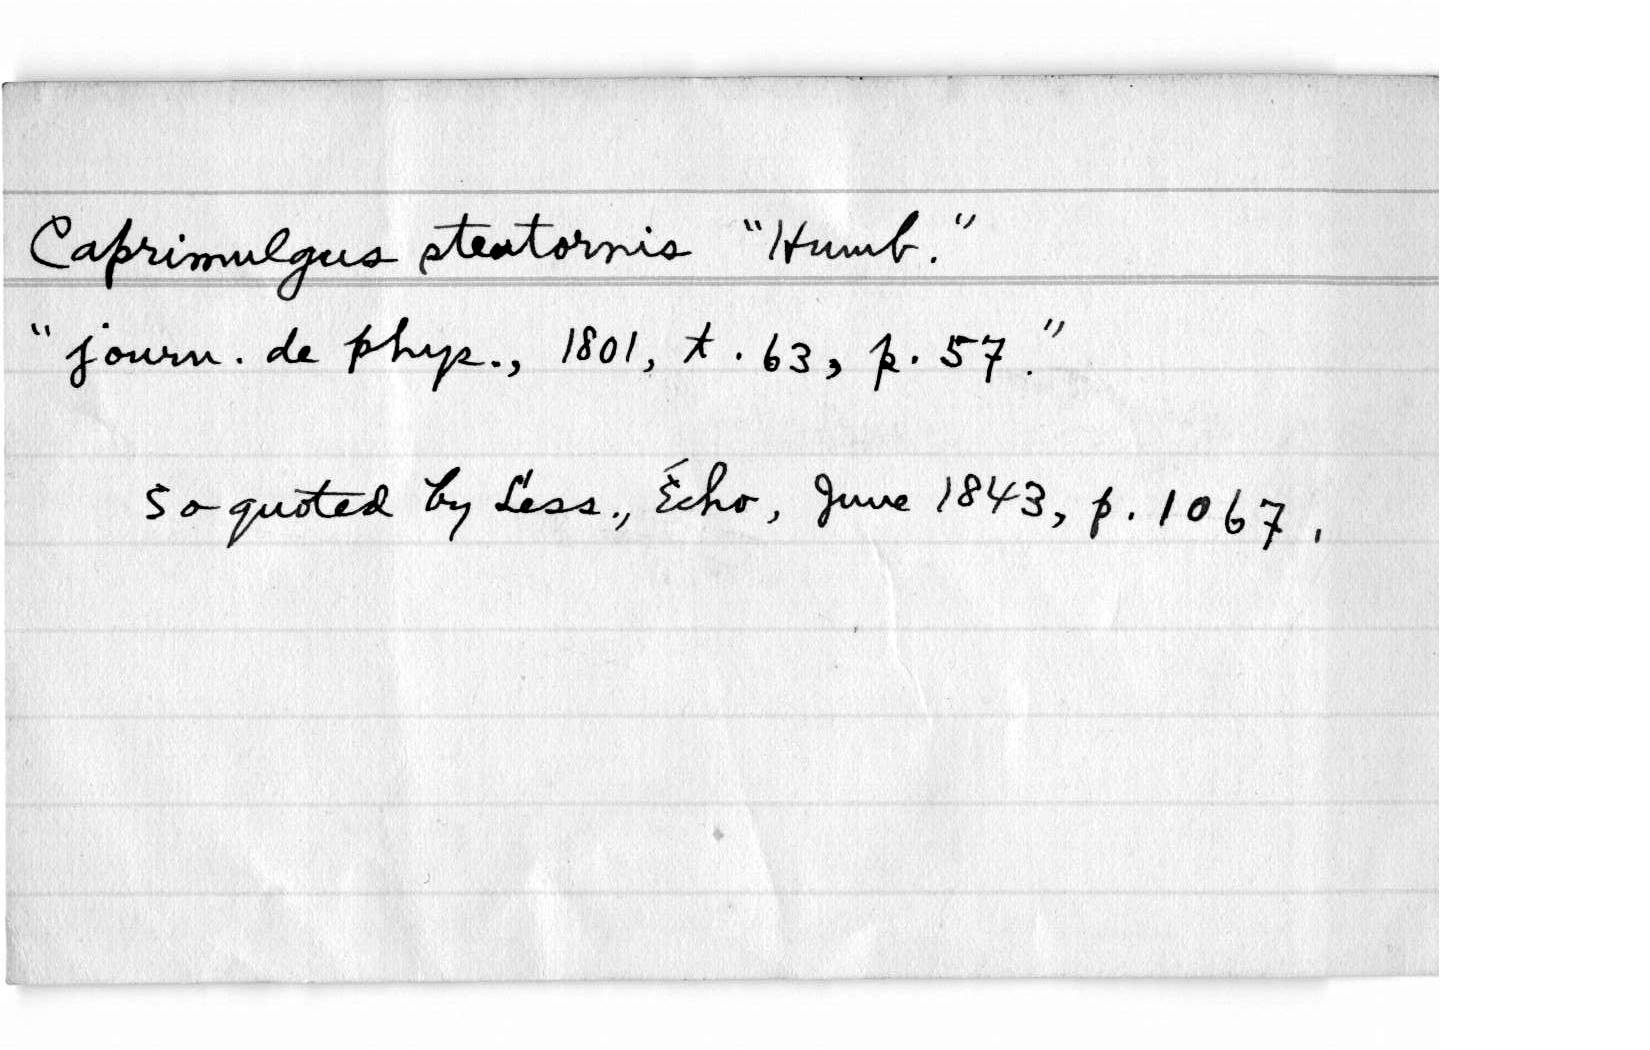 Caprimulgus steatornis "Humb."
"journ. de phys., 1801, t. 63, p. 57."
so quoted by Less., Écho, June 1843, p. 1067.